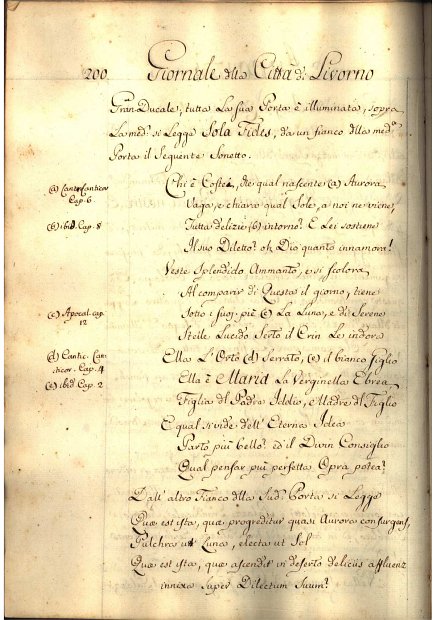 200. Giornale della Città di Livorno
Gran-Ducale, tutta la sua Porta è illuminata, sopra
la med.ª si legge Sola Fides, da un fianco della med.ª
Porta il seguente Sonetto.
Chi è Costei, che qual nascente (a) Aurora
(a) Cant. Canticor. Cap. 6.
Vaga, e chiara qual Sole, a noi ne viene,
Tutta delizie (b) intorno? E Lei sostiene
(b) ibid. Cap. 8
Il suo Diletto? oh Dio quanto innamora!
Veste splendido Ammanto, e si scolora
Al comparir di Questa il giorno, tiene
Sotto i suoj piè (c) La Luna, e di Serene
(c) Apocal. cap. 12
Stelle Lucido Serto il Crin Le indora
Ella L'Orto (d) Serrato, (e) il bianco Giglio
(d) Cantic. Canticor. Cap. 4
Ella è Maria La Verginella Ebrea
(e) ibid Cap. 2
Figlia del Padre Iddio, e Madre del Figlio
E qual si vide dell' Eterna Idea
Parto più bello? ed il Divin Consiglio
Qual pensar più perfetta Opra potea?
Dall' altro Fianco della Sud.ª Porta si Legge
Quæ est ista, quæ progreditur quasi Aurora consurgens,
Pulchra ut Luna, electa ut Sol
Quæ est ista, quæ ascendit in deserto deliciis affluenz
innixa super Dilectum Suum?